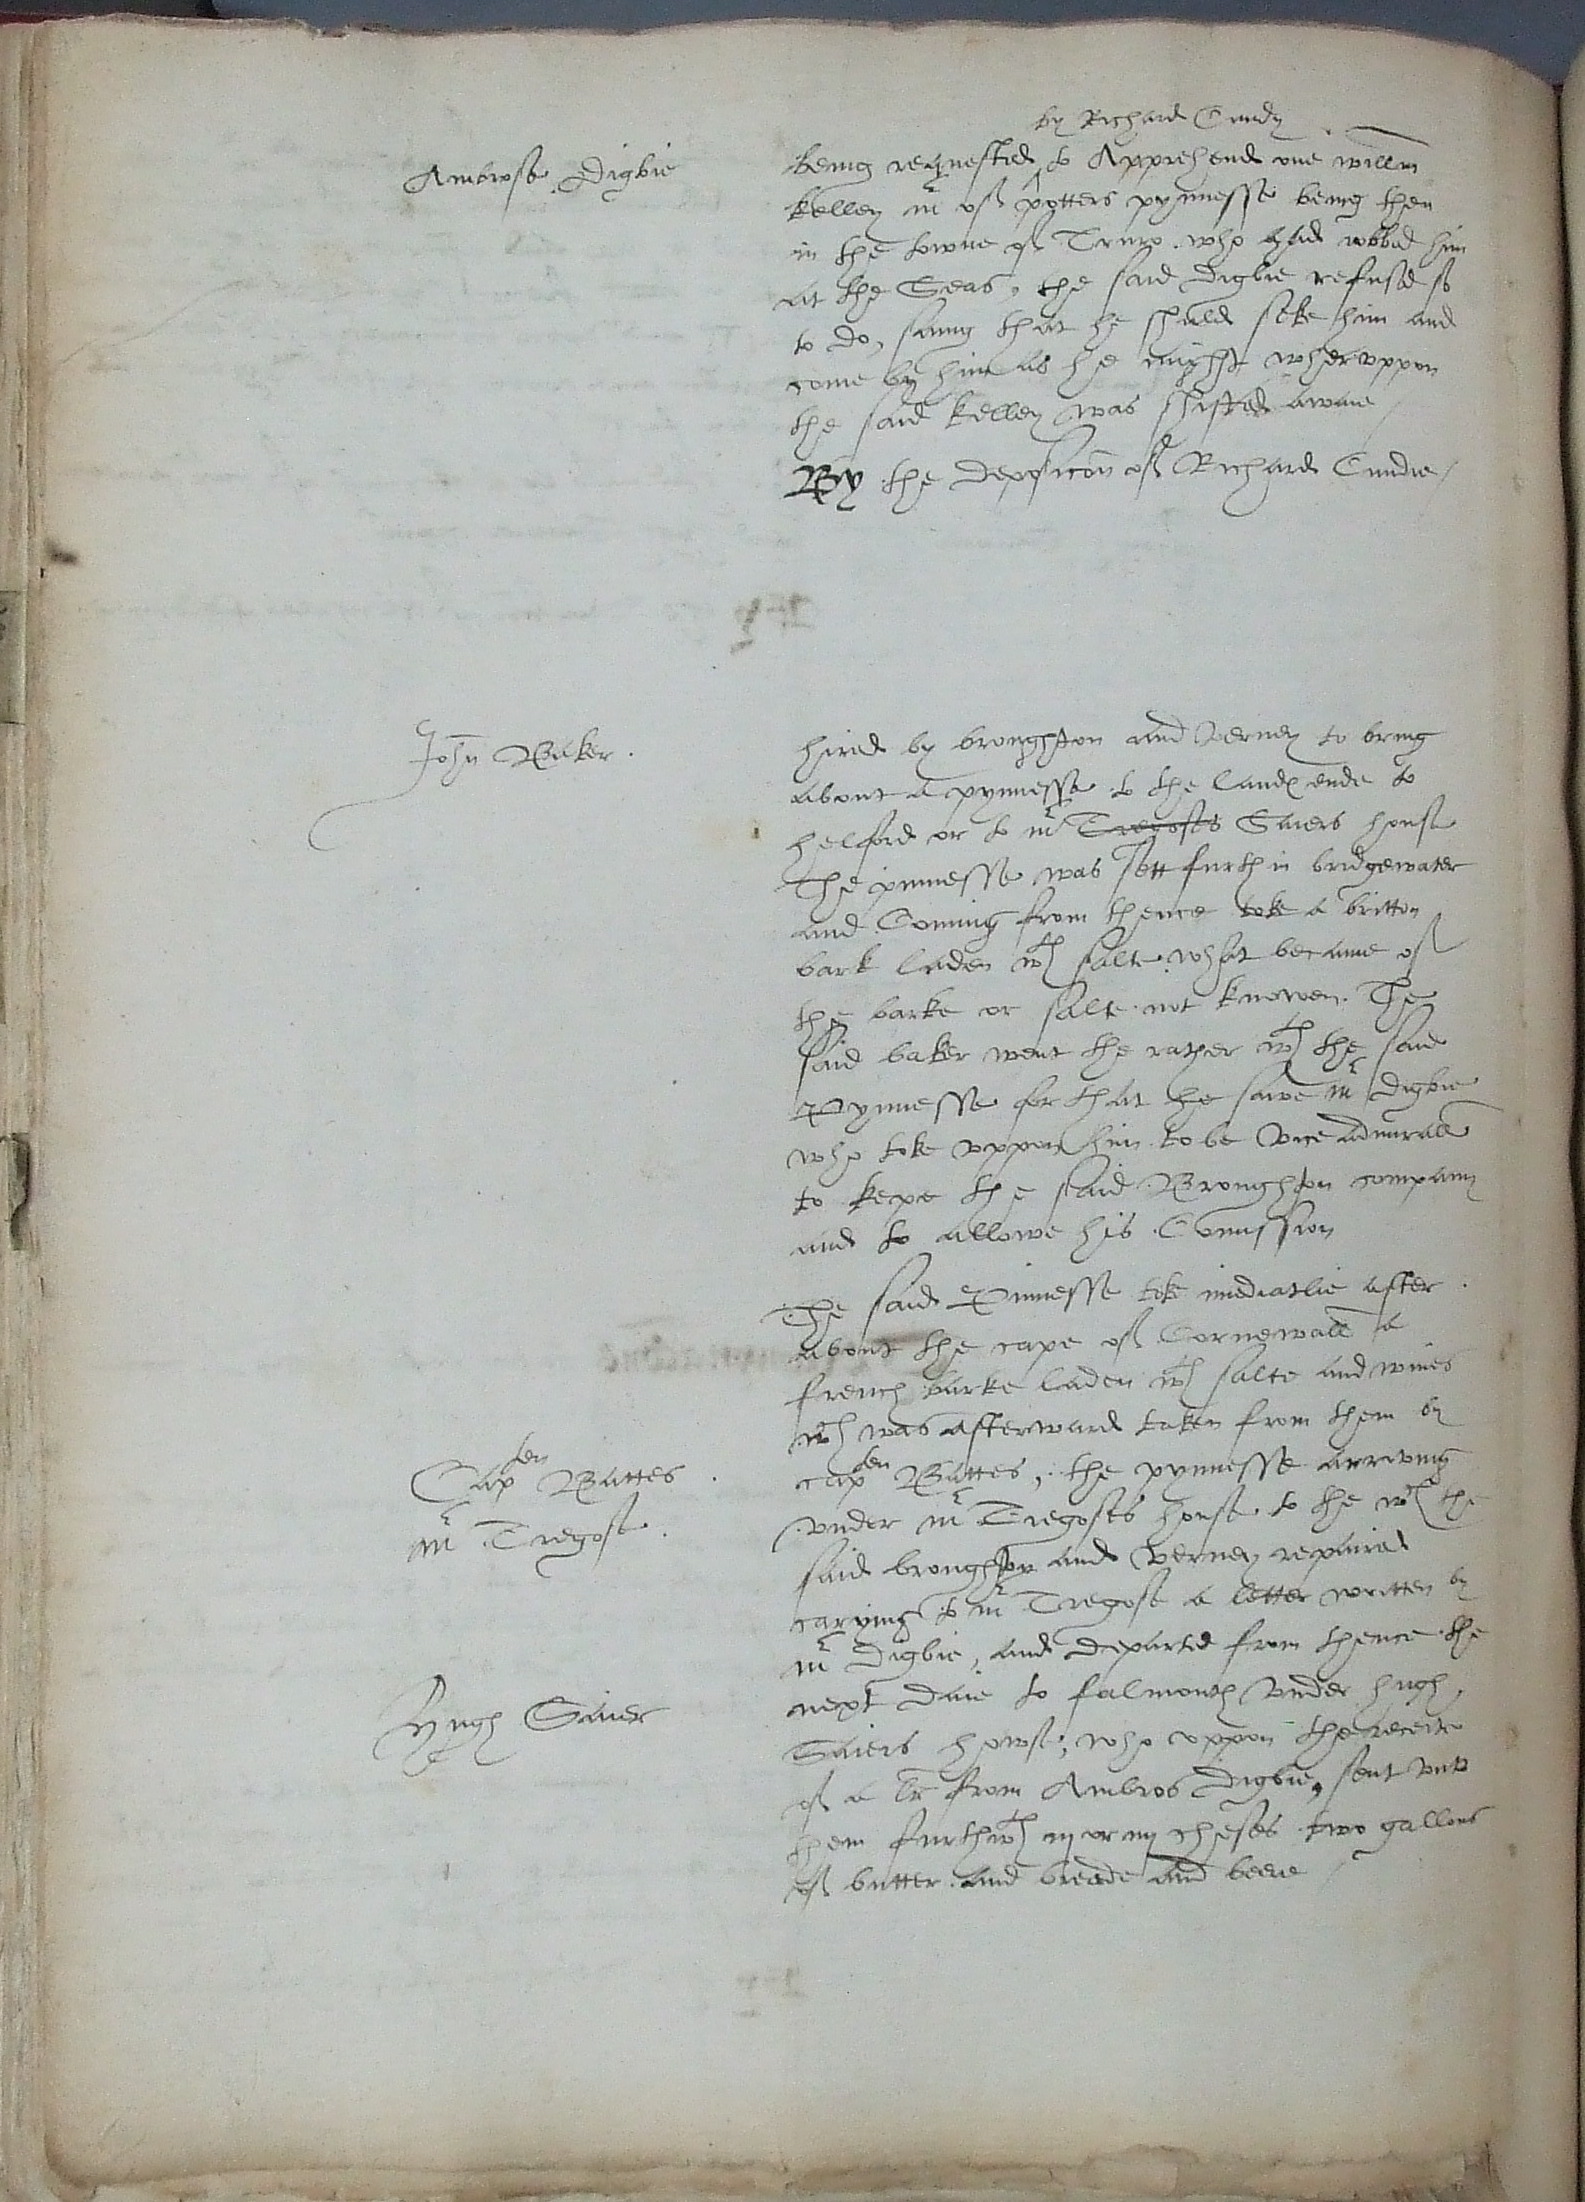 by Richard Cundy
Ambrose Digbie
being requested to Apprehend one willm
kelley mr of potters pynnesse being then
in the towne of Truro who had robbed him
at the Seas, the said Digbie refused so
to do, saing that he shuld seke him and
come by him as he might wheruppon
the said kelley was shifted awaie
By the deposicon of Richard Cundie
John Baker.
hired by broughton and verney to bring
about a pynnesse to the landes ende to
helford or to mr Tregosts Saiers house
The pinnesse was sett furth in bridgewater
and Coming from thence toke a britton
bark laden wth salte what became of
the barke or salte not knowen. The
said baker went the rather wth the said
Pynnesse for that he sawe mr Digbie
who toke uppon him to be vice admirall
to kepe the said Broughton company
and to allowe his Comission
The said Pinnesse toke imediatlie after
about the cape of Cornewall a
french barke laden wth salte and wines
wch was afterward taken from them by
Capten Battes.
capten Battes, the pynnesse arriving
mr Tregose.
under mr Tregoses house to the wch the
said broughton and verney repaired
carying to mr Tregose a letter written by
mr Digbie, and departed from thence the
Hugh Saier
next daie to falmouth under hugh
Saiers howse, who uppon the receite
of a lr from Ambros Digbie, sent unto
them furthwth iij or iiij cheses two gallons
of butter and breade and beere